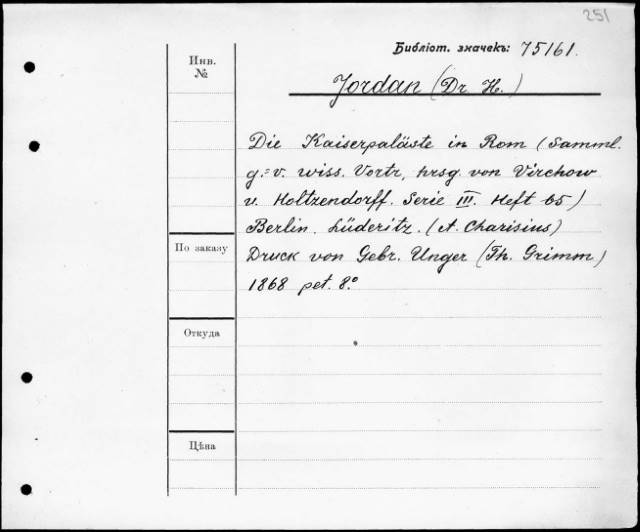 251
Библіот. значекъ: 75161.
Инв.
№
Jordan (Dr H.)
Die Kaiserpaläste in Rom (Samml.
g.=v. wiss. Vortr, hrsg. von Virchow
v. Holtzendorff. Serie III. Heft 65)
Berlin. Lüderitz. (A. Charisius)
По заказу
Druck von Gebr. Unger (Th. Grimm)
1868 pet. 8.º
Откуда
Цѣна